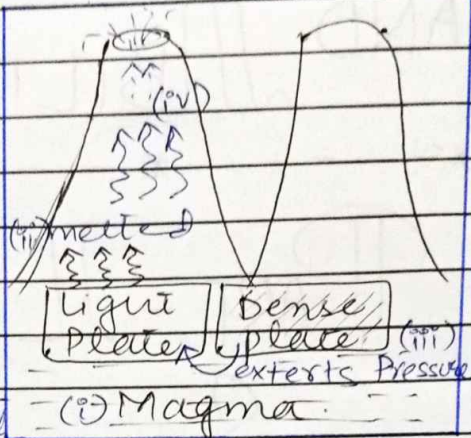 (iv)
(ii) melted
Light Dense
Plate plate (iii)
exterts Pressure
(i) Magma.